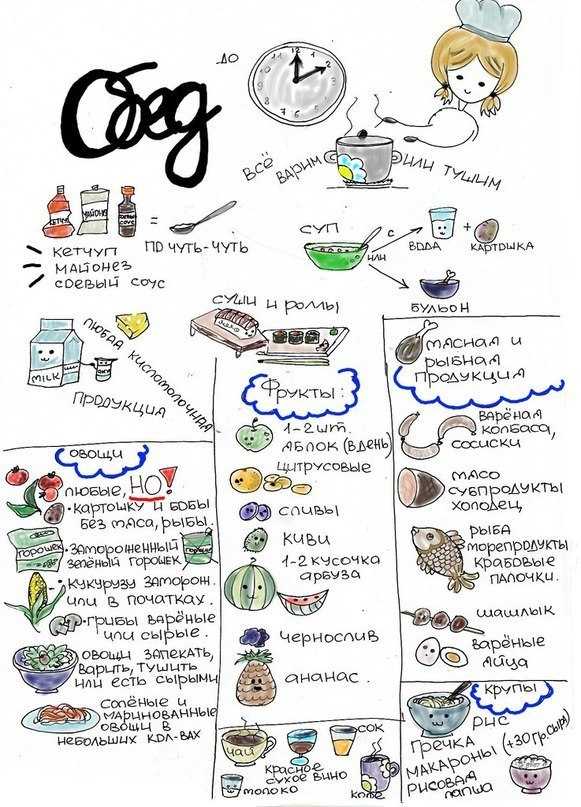 Обед
ДО
12
1
2
3
4
5
6
7
8
9
10
11
ВСЁ ВАРИМ ИЛИ ТУШИМ
КЕТЧУП
МАЙОНЕЗ
= ПО ЧУТЬ-ЧУТЬ
КЕТЧУП
МАЙОНЕЗ
СОЕВЫЙ СОУС
СУП
С
ИЛИ
ВОДА
+
КАРТОШКА
БУЛЬОН
MILK
ЛЮБАЯ КИСЛОМОЛОЧНАЯ
ПРОДУКЦИЯ
СУШИ И РОЛЛЫ
ОВОЩИ
ЛЮБЫЕ, НО!
• КАРТОШКУ И БОБЫ
БЕЗ МЯСА, РЫБЫ.
ГОРОШЕК
• ЗАМОРОЖЕННЫЙ
ЗЕЛЁНЫЙ ГОРОШЕК
• КУКУРУЗУ ЗАМОРОЖ.
ИЛИ В ПОЧАТКАХ.
• ГРИБЫ ВАРЁНЫЕ
ИЛИ СЫРЫЕ.
ОВОЩИ ЗАПЕКАТЬ,
ВАРИТЬ, ТУШИТЬ
ИЛИ ЕСТЬ СЫРЫМИ
СОЛЁНЫЕ И
МАРИНОВАННЫЕ
ОВОЩИ В
НЕБОЛЬШИХ КОЛ-ВАХ
ФРУКТЫ:
1-2 ШТ.
ЯБЛОК (В ДЕНЬ)
ЦИТРУСОВЫЕ
СЛИВЫ
КИВИ
1-2 КУСОЧКА
АРБУЗА
ЧЕРНОСЛИВ
АНАНАС.
ЧАЙ
КРАСНОЕ
СУХОЕ ВИНО
СОК
МОЛОКО
КОФЕ
МЯСНАЯ И
РЫБНАЯ
ПРОДУКЦИЯ
ВАРЁНАЯ
КОЛБАСА,
СОСИСКИ
МЯСО
СУБПРОДУКТЫ
ХОЛОДЕЦ
РЫБА
МОРЕПРОДУКТЫ
КРАБОВЫЕ
ПАЛОЧКИ.
ШАШЛЫК
ВАРЁНЫЕ
ЯЙЦА
КРУПЫ
РИС
ГРЕЧКА
МАКАРОНЫ (+30 ГР. СЫРА)
РИСОВАЯ
ЛАПША